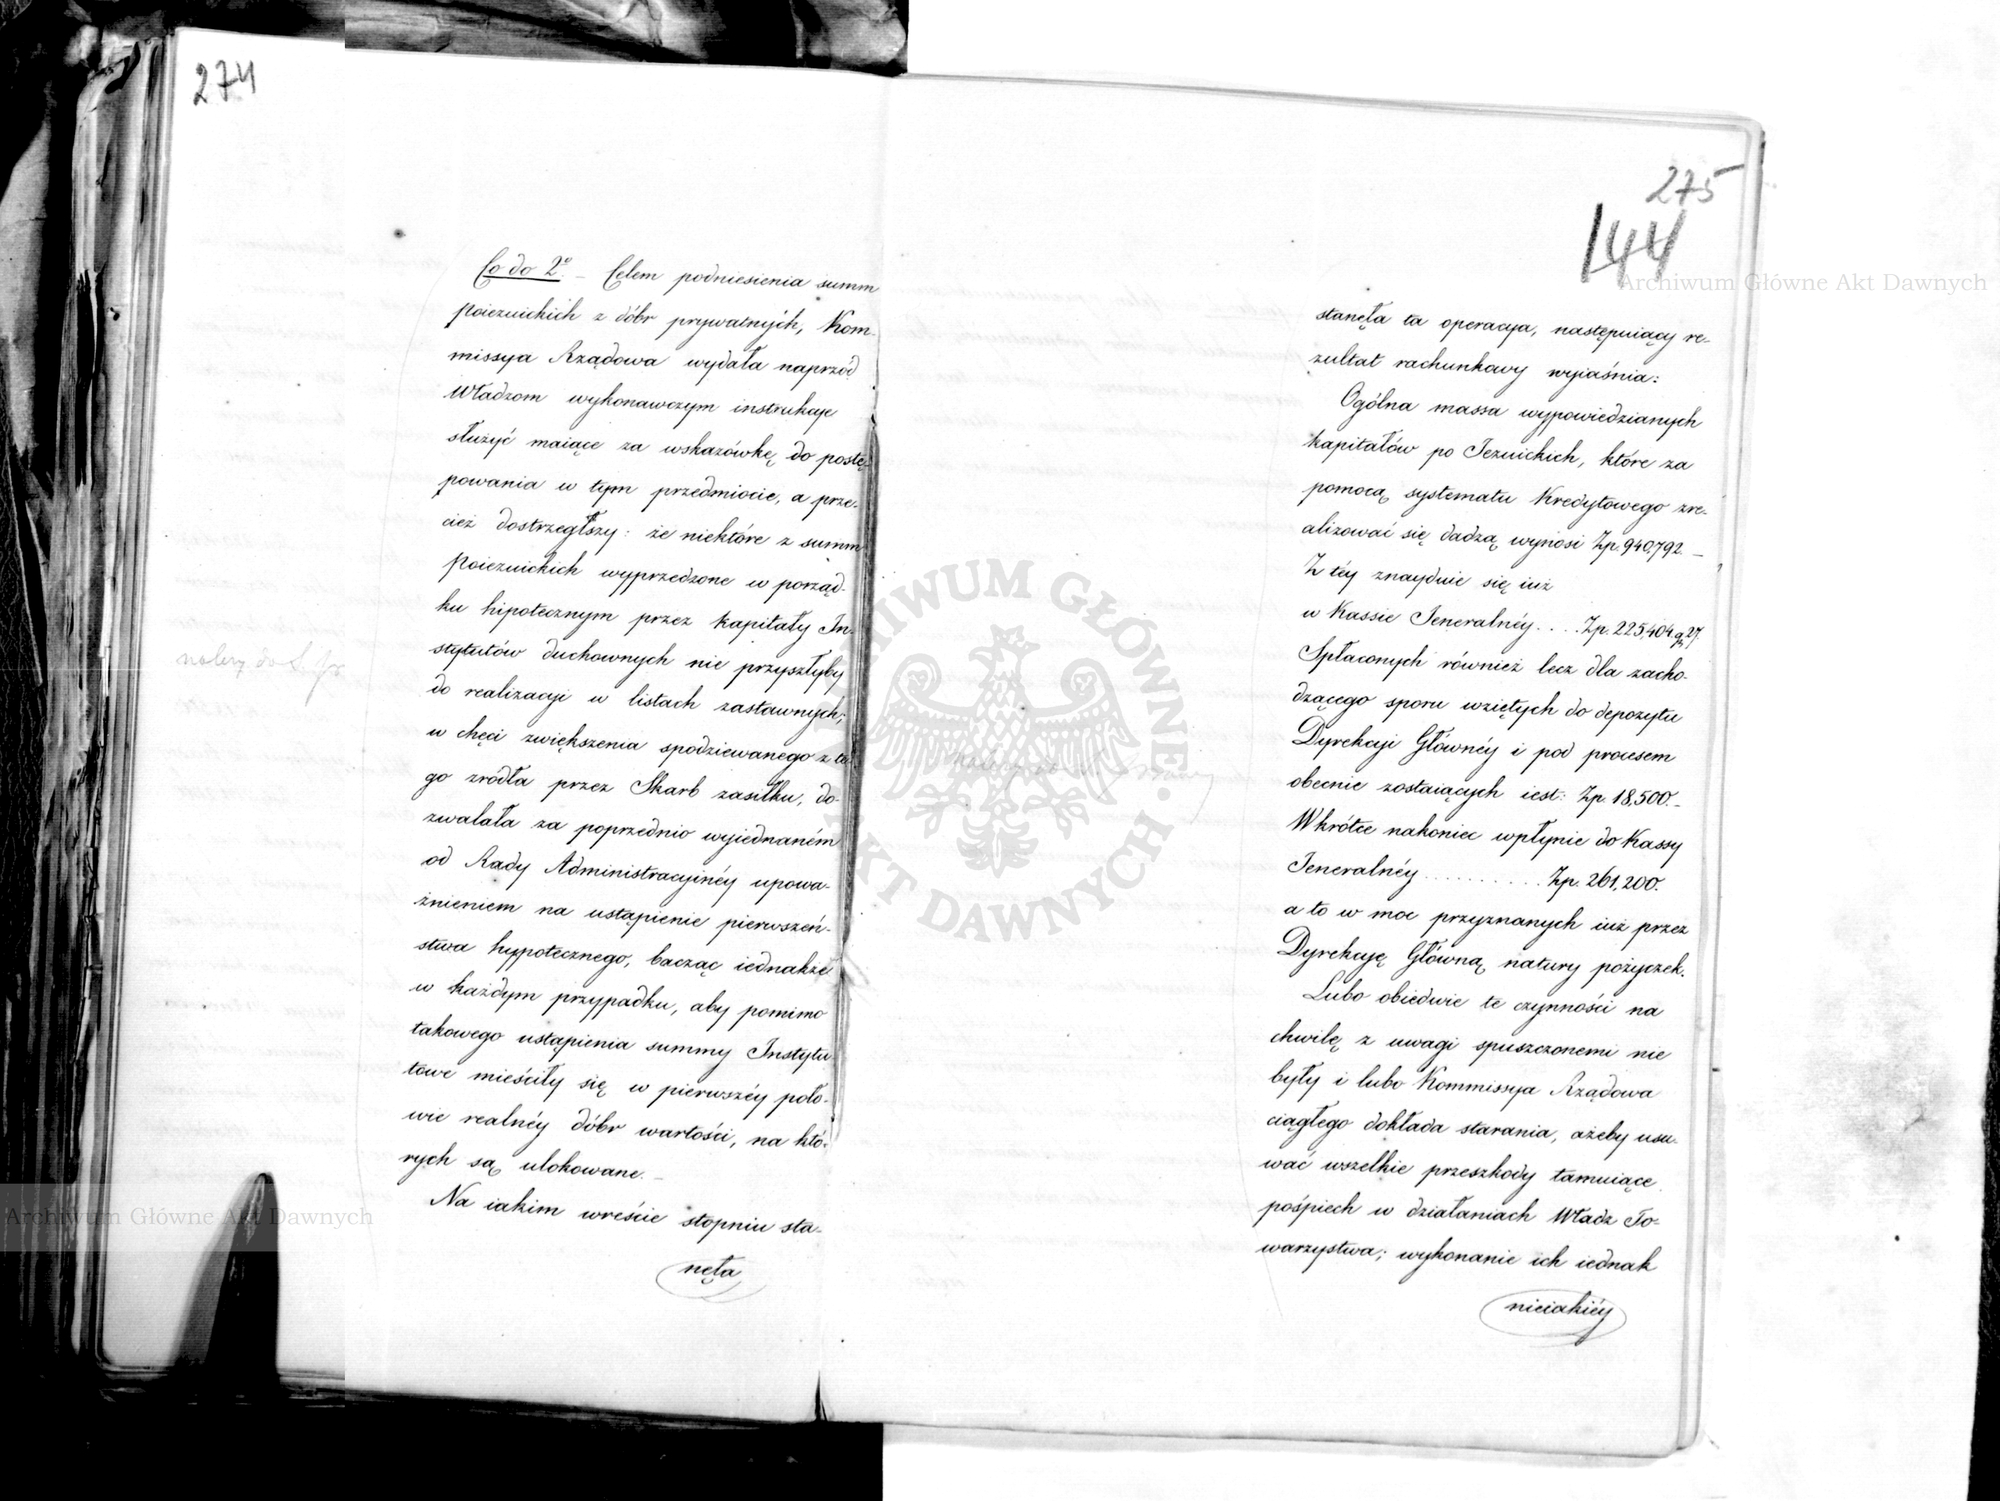 274
Co do 2º. – Celem podniesienia summ
poiezuickich z dóbr prywatnych, Kom-
missya Rządowa wydała naprzód
Władzom wykonawczym instrukcje
służyć maiące za wskazówkę do postę-
powania w tym przedmiocie, a prze-
cież dostrzegłszy: że niektóre z summ
poiezuickich wyprzedzone w porząd-
ku hipotecznym przez kapitały In-
stytutów duchownych nie przyszłyby
do realizacyi w listach zastawnych;
w chęci zwiększenia spodziewanego z te-
go zródła przez Skarb zasiłku, do-
zwalała za poprzednio wyiednaném
od Rady Administracyinéy upowa-
żnieniem na ustąpienie pierwszeń-
stwa hypotecznego, bacząc iednakże
w każdym przypadku, aby pomimo
takowego ustąpienia summy Instytu
towe mieściły się w pierwszéy poło-
wie realnéy dóbr wartości, na któ-
rych są ulokowane. –
Na iakim wreście stopniu sta-
nęła
275
144
stanęła ta operacya, następuiący re-
zultat rachunkowy wyiaśnia:
Ogólna massa wypowiedzianych
kapitałów po Jezuickich, które za
pomocą systematu Kredytowego zre-
alizować się dadzą wynosi Zp. 940,792. –
Z téy znayduie się iuż
w Kassie Jeneralnéy.... Zp. 225,404 g 27.
Spłaconych również lecz dla zacho-
dzącego sporu wziętych do depozytu
Dyrekcyi Głównéy i pod procesem
obecnie zostaiących iest: Zp. 18,500. –
Wkrótce nakoniec wpłynie do Kassy
Jeneralnéy .......... Zp. 261,200.
a to w moc przyznanych iuż przez
Dyrekcyę Główną natury pożyczek.
Lubo obiedwie te czynności na
chwilę z uwagi spuszczonemi nie
były i lubo Kommissya Rządowa
ciągłego dokłada starania, ażeby usu-
wać wszelkie przeszkody tamuiące
pośpiech w działaniach Władz To-
warzystwa; wykonanie ich iednak
nieiakiéy
Archiwum Główne Akt Dawnych
Archiwum Główne Akt Dawnych
ARCHIWUM GŁÓWNE AKT DAWNYCH